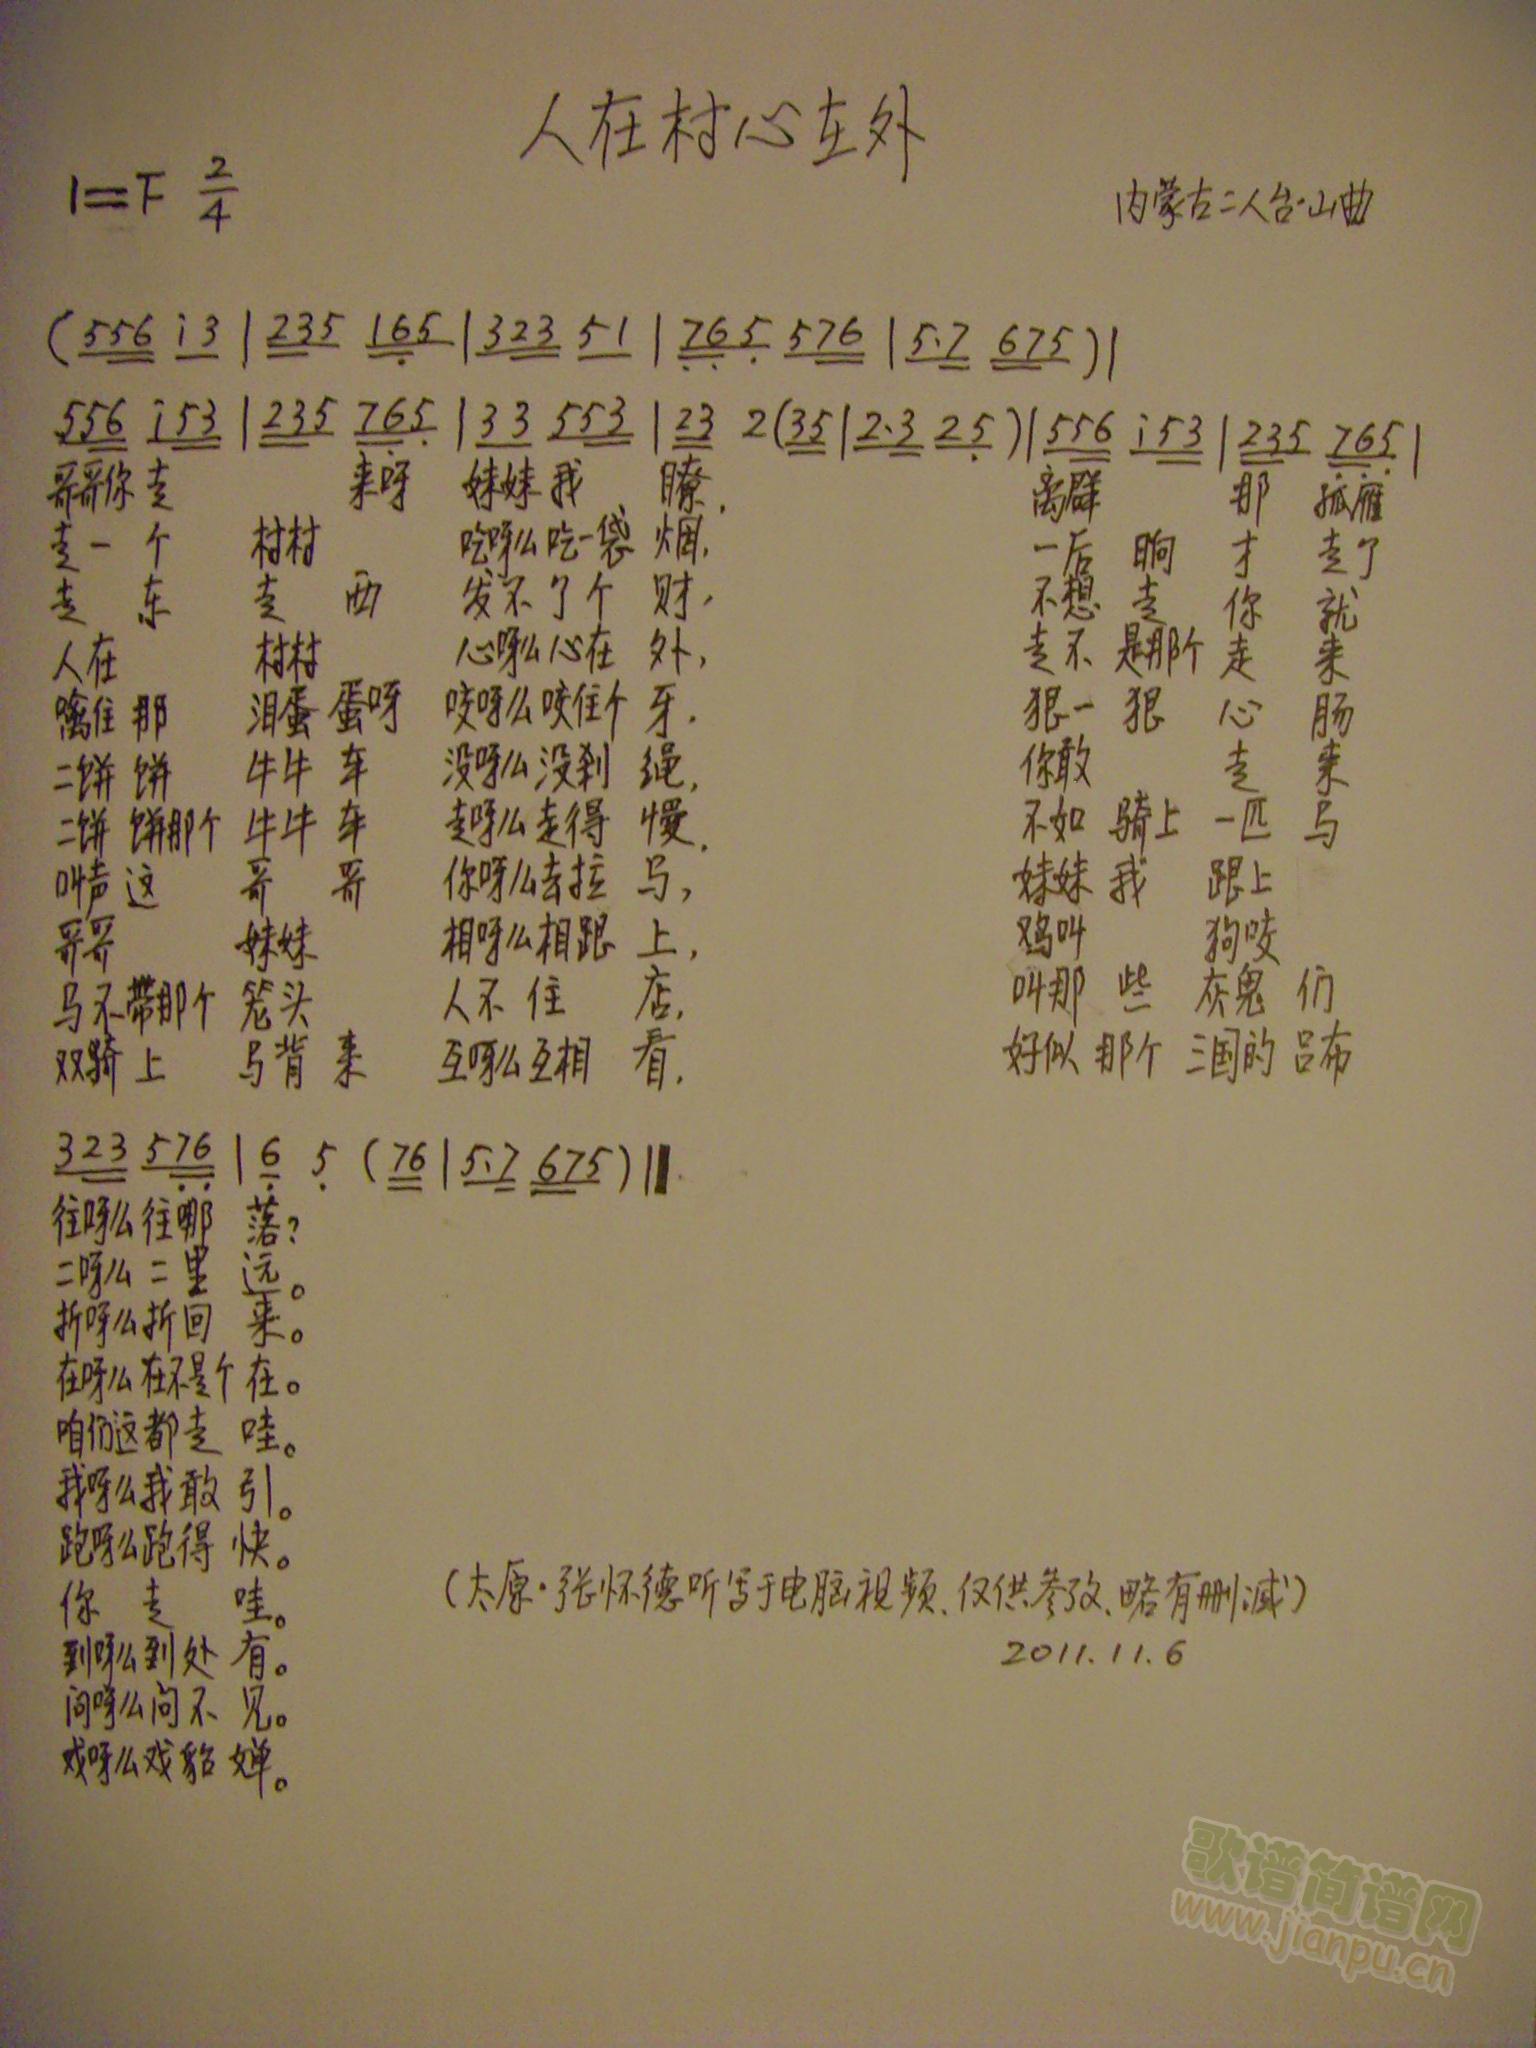 人在村心在外
1=F 2/4
内蒙古二人台·山曲
(556 i3|235 165|323 51|765 576|5·7 675)|
556 i53|235 765|33 553|23 2(35|2·3 25)|556 i53|235 765|
哥哥你走 来呀 妹妹我 瞭, 离群 那 孤雁
走一个 村村 吃呀么吃一袋 烟, 一后 晌 才 走了
走东 走西 发不了个 财, 不想 走 你 就
人在 村村 心呀么心在 外, 走不 是那个 走 来
噙住那 泪蛋 蛋呀 咬呀么咬住个 牙, 狠一 狠 心 肠
二饼饼 牛牛 车 没呀么没刹 绳, 你敢 走 来
二饼饼那个 牛牛 车 走呀么走得 慢, 不如 骑上 一匹 马
叫声这 哥 哥 你呀么去拉 马, 妹妹 我 跟上
哥哥 妹妹 相呀么相跟 上, 鸡叫 狗咬
马不带那个 笼头 人不住 店, 叫那 些 灰鬼 们
双骑上 马背 来 互呀么互相 看, 好似 那个 三国的 吕布
323 576|6 5(76|5·7 675)‖
往呀么往哪 落?
二呀么二里 远。
折呀么折回 来。
在呀么在不是个 在。
咱们这都走 哇。
我呀么我敢 引。
跑呀么跑得 快。
你 走 哇。
到呀么到处 有。
问呀么问不 见。
戏呀么戏貂 婵。
(太原·张怀德听写于电脑视频、仅供参考、略有删减)
2011.11.6
歌谱简谱网
www.jianpu.cn